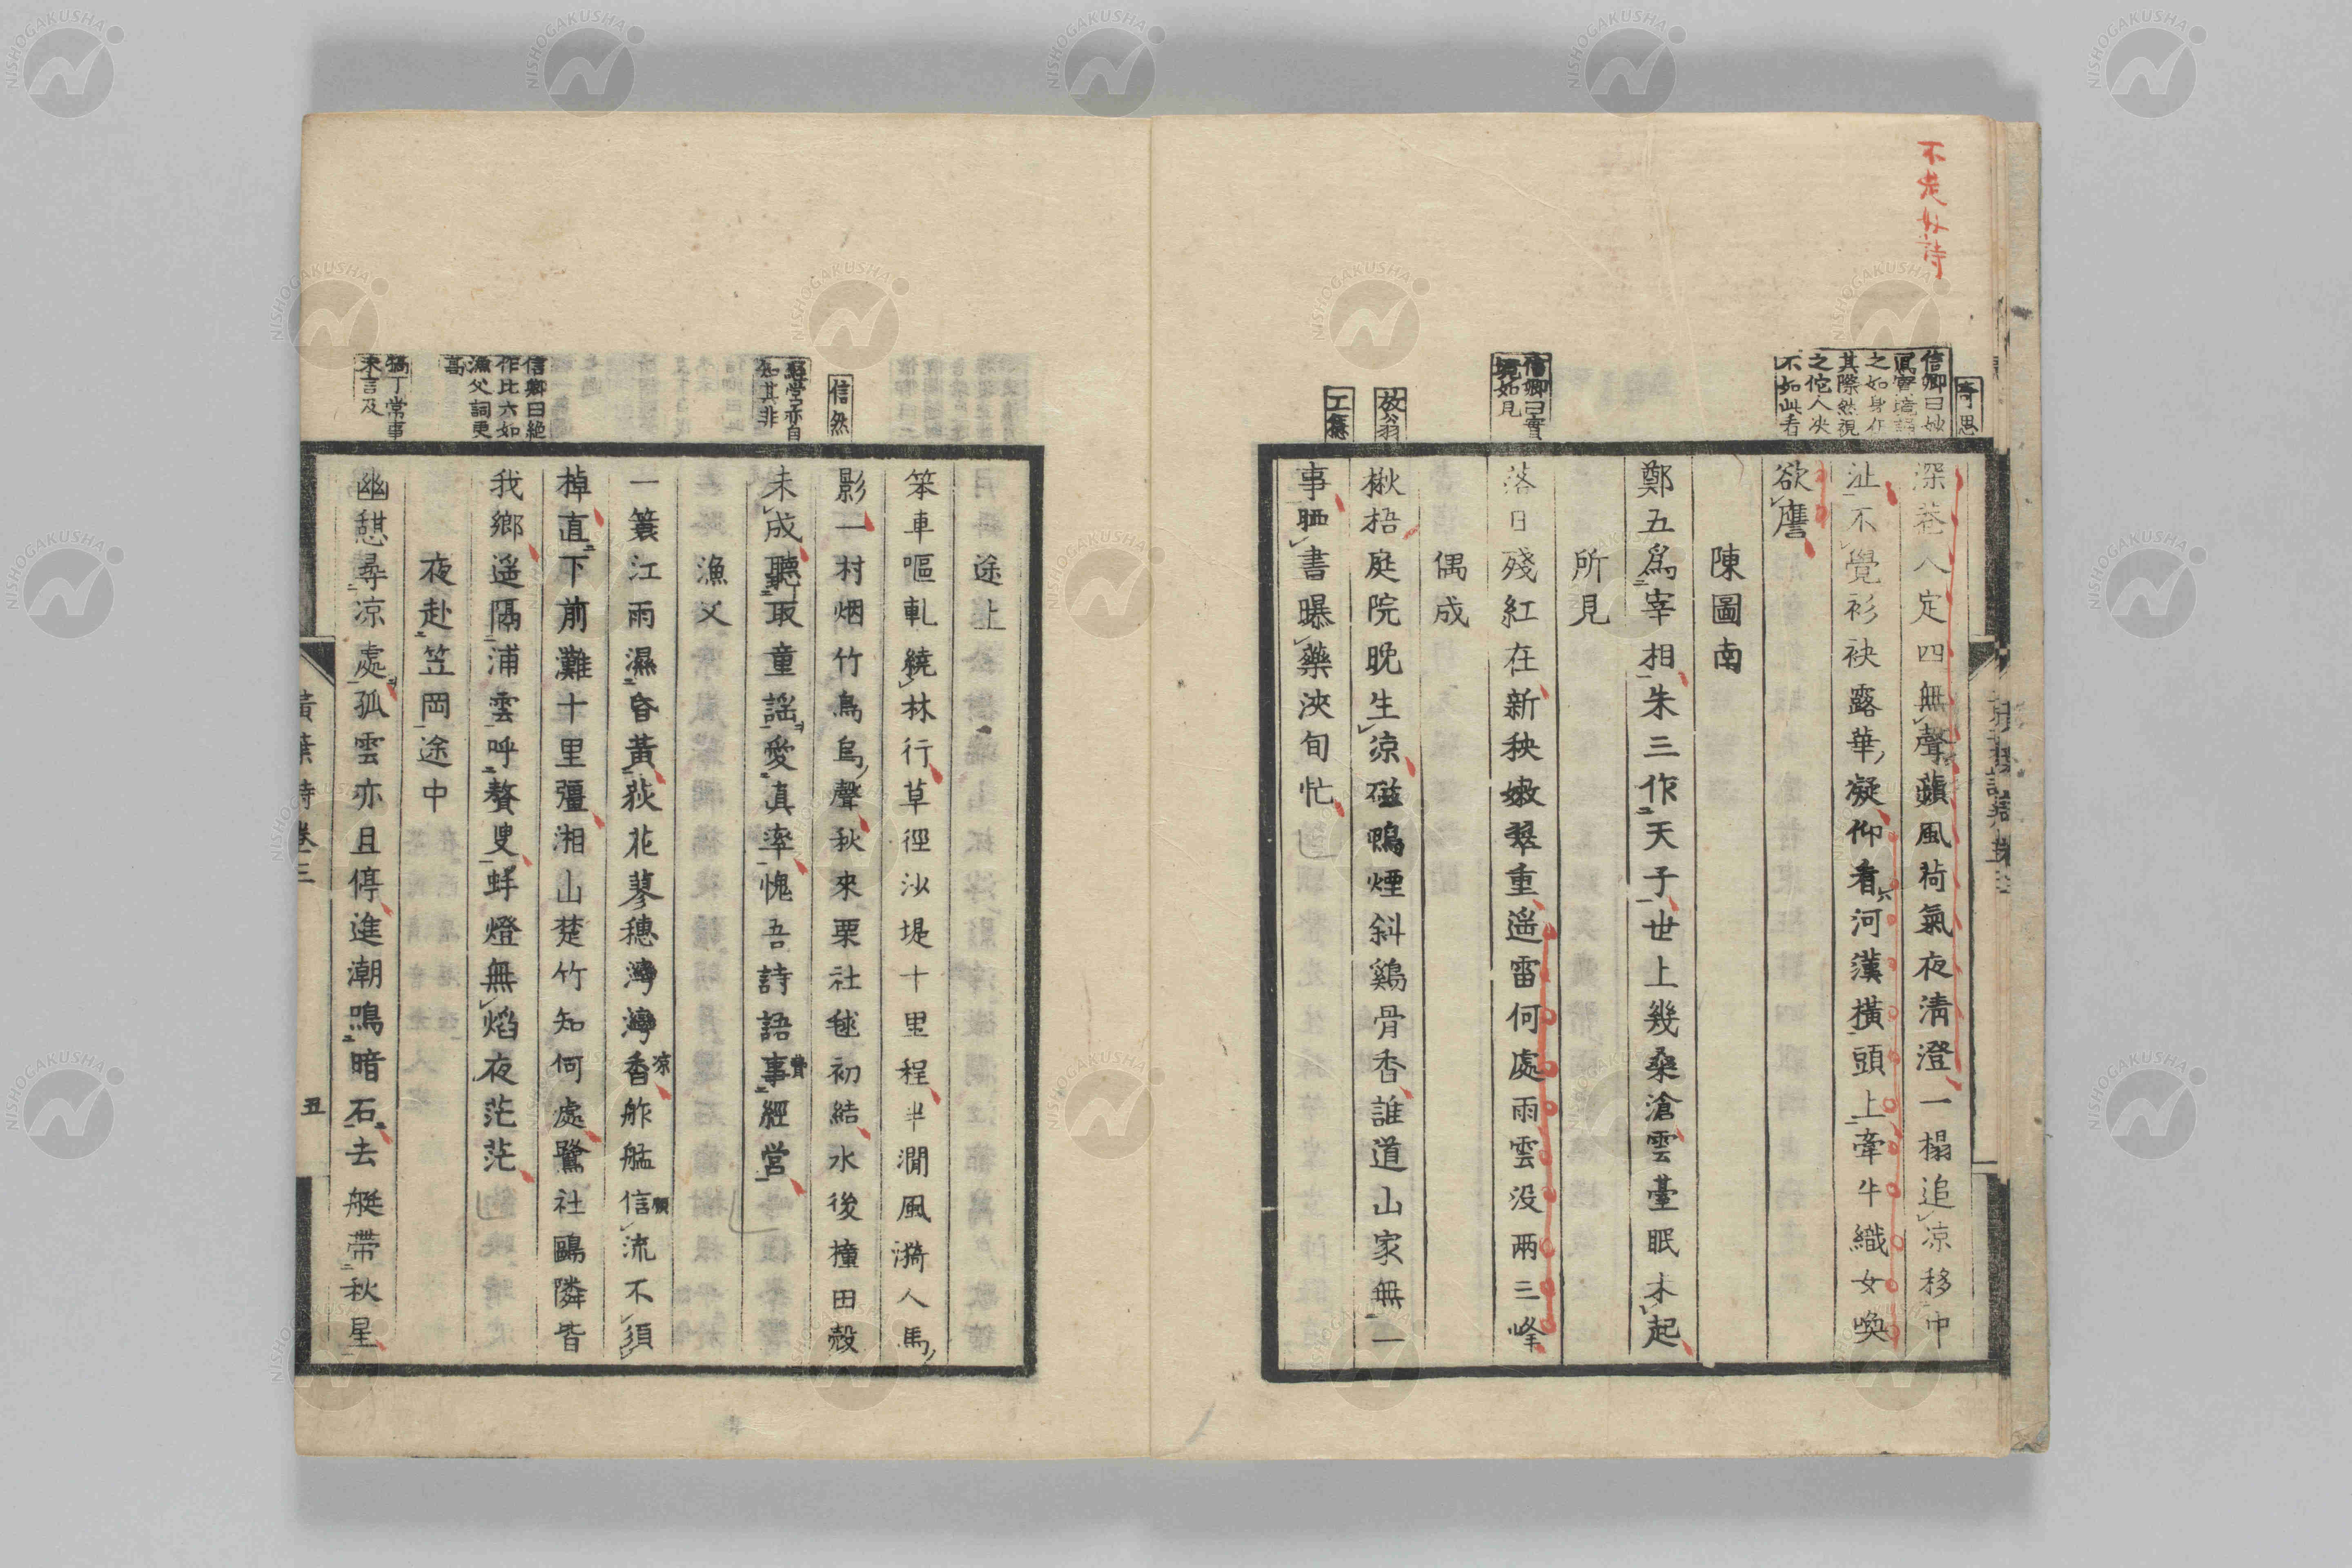 不是好詩
奇思
信卿曰妙
之如身在
其際然視
之佗人决
不如此看
深巷人定四無聲蘋風荷氣夜淸澄一榻追凉移中
沚不覺衫袂露華凝仰看河漢橫頭上牽牛織女喚
欲譍
陳圖南
鄭五爲宰相朱三作天子世上幾桑滄雲臺眠未起
所見
信卿曰實
境如見
落日殘紅在新秧嫩翠重遥雷何處雨雲没兩三峰
偶成
放翁
楸梧庭院晚生凉磁鴨煙斜鷄骨香誰道山家無一
工穩
事晒書曝藥浹旬忙
途上
笨車嘔軋繞林行草徑沙堤十里程半澗風漪人馬
信然
影一村烟竹鳥烏聲秋來栗社毬初結水後撞田殼
經營亦自
知其非
未成聽取童謡愛眞率愧吾詩語事經営
費
漁父
一簑江雨濕昏黃荻花蓼穗灣灣香舴艋信流不須
凉
願
棹直下前灘十里彊湘山楚竹知何處鷺社鷗隣皆
信卿曰絶
作比六如
漁父詞更
高
我鄉遥隔浦雲呼聱叟蚌燈無焰夜茫茫
夜赴笠岡途中
犒丁常事
未言及
幽憇尋凉處孤雲亦且停進潮鳴暗石去艇帶秋星
黃葉詩 卷三 五